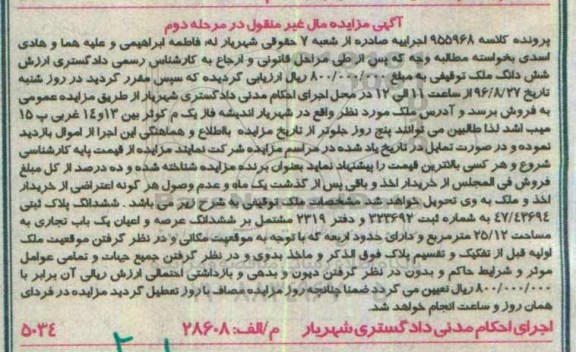 آگهی مزایده مال غیر منقول در مرحله دوم
پرونده کلاسه ۹۵۵۹۶۸ اجراییه صادره از شعبه ۷ حقوقی شهریار له، فاطمه ابراهیمی و علیه هما و هادی
اسدی بخواسته مطالبه وجه که پس از طی مراحل قانونی و ارجاع به کارشناس رسمی دادگستری ارزش
شش دانگ ملک توقیفی به مبلغ ۸۰۰/۰۰۰/۰۰۰ ریال ارزیابی گردیده که سپس مقرر گردید در روز شنبه
تاریخ ۹۶/۸/۲۷ از ساعت ۱۱ الی ۱۲ در محل اجرای احکام مدنی دادگستری شهریار از طریق مزایده عمومی
به فروش برسد و آدرس ملک مورد نظر واقع در شهریار اندیشه فاز یک م کوثر بین ۱۳ و ۱۴ غربی پ ۱۵
میب اشد لذا طالبین می توانند پنج روز جلوتر از تاریخ مزایده بااطلاع و هماهنگی این اجرا از اموال بازدید
نموده و در صورت تمایل در تاریخ یاد شده در مراسم مزایده شرکت نمایند مزایده از قیمت پایه کارشناسی
شروع و هر کسی بالاترین قیمت را پیشنهاد نماید بعنوان برنده مزایده شناخته شده و ده درصد از کل مبلغ
فروش فی المجلس از خریدار اخذ و باقی پس از گذشت یک ماه و عدم وصول هر گونه اعتراضی از خریدار
اخذ و ملک به وی تحویل خواهد شد. مشخصات ملک توقیفی به شرح زیر می باشد . ششدانگ پلاک ثبتی
۴۷/۴۳۶۹۴ به شماره ثبت ۳۳۳۶۹۲ و دفتر ۲۳۱۹ مشتمل بر ششدانگ عرصه و اعیان یک باب تجاری به
مساحت ۲۵/۱۲ مترمربع و دارای حدود اربعه که با توجه به موقعیت مکانی و در نظر گرفتن موقعیت ملک
اولیه قبل از تفکیک و تقسیم پلاک فوق الذکر و ماخذ بدوی و در نظر گرفتن جمیع جهات و تمامی عوامل
موثر و شرایط حاکم و بدون در نظر گرفتن دیون و بدهی و بازداشتی احتمالی ارزش ریالی آن برابر با
۸۰۰/۰۰۰/۰۰۰ ریال تعیین می گردد ضمنا چنانچه روز مزایده مصادف با روز تعطیل گردید مزایده در فردای
همان روز و ساعت انجام خواهد شد.
اجرای احکام مدنی دادگستری شهریار م/الف: ۲۸۶۰۸ ۵۰۳۴